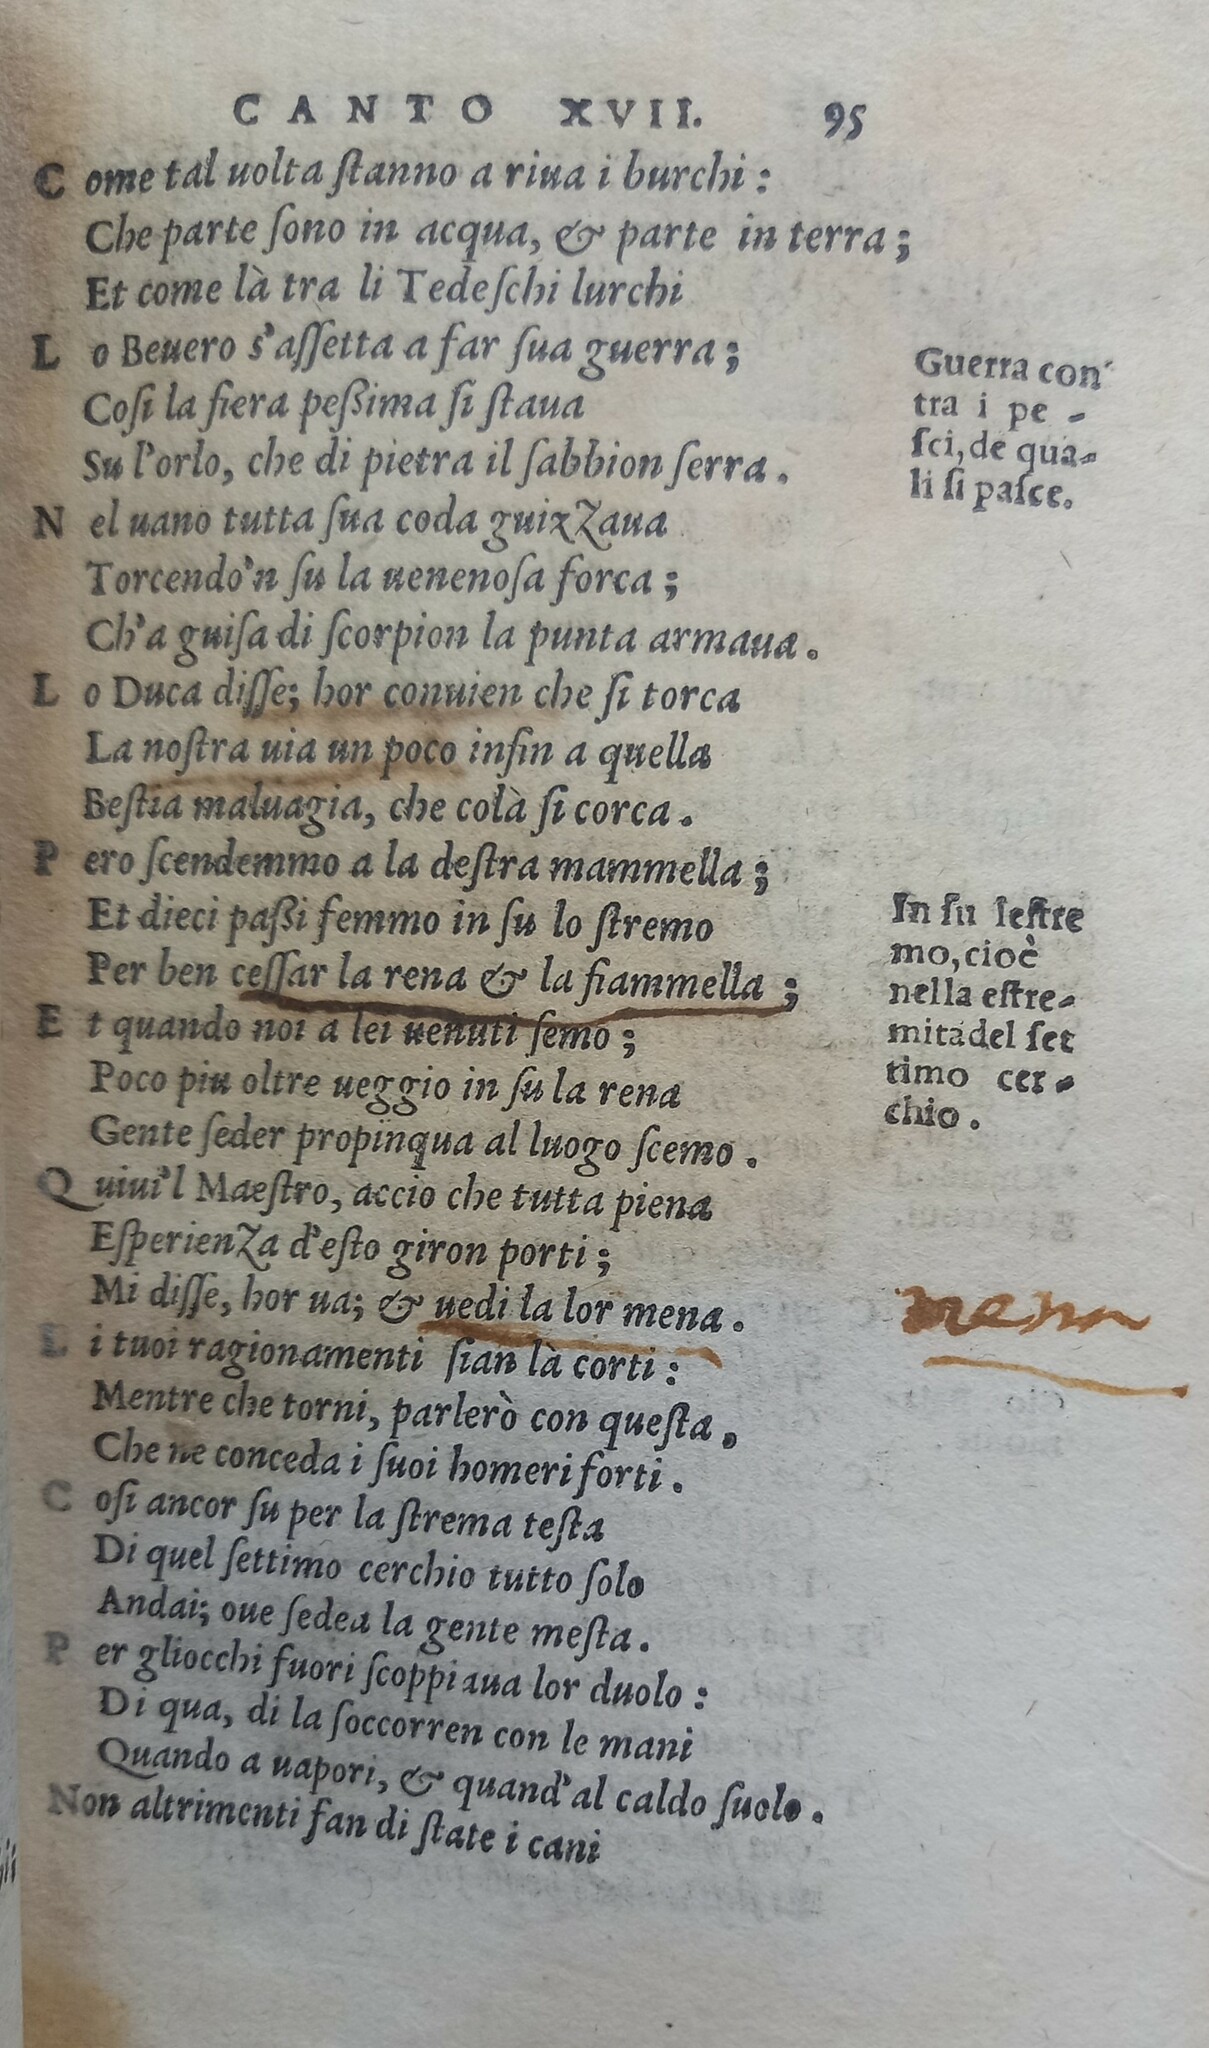 CANTO XVII. 95
Come tal uolta ſtanno a riua i burchi:
Che parte ſono in acqua, & parte in terra;
Et come là tra li Tedeſchi lurchi
Lo Beuero s'aſſetta a far ſua guerra;
Coſi la fiera peßima ſi ſtaua
Su l'orlo, che di pietra il ſabbion ſerra.
Nel uano tutta ſua coda guizzaua
Torcendo'n ſu la uenenoſa forca;
Ch'a guiſa di ſcorpion la punta armaua.
Lo Duca diſſe; hor conuien che ſi torca
La noſtra uia un poco inſin a quella
Beſtia maluagia, che colà ſi corca.
Pero ſcendemmo a la deſtra mammella;
Et dieci paßi femmo in ſu lo ſtremo
Per ben ceſſar la rena & la fiammella;
Et quando noi a lei uenuti ſemo;
Poco piu oltre ueggio in ſu la rena
Gente ſeder propinqua al luogo ſcemo.
Quiui'l Maeſtro, accio che tutta piena
Eſperienza d'eſto giron porti;
Mi diſſe, hor ua; & uedi la lor mena.
Li tuoi ragionamenti ſian là corti:
Mentre che torni, parlerò con queſta,
Che ne conceda i ſuoi homeri forti.
Coſi ancor ſu per la ſtrema teſta
Di quel ſettimo cerchio tutto ſolo
Andai; oue ſedea la gente meſta.
Per gliocchi fuori ſcoppiaua lor duolo:
Di qua, di la ſoccorren con le mani
Quando a uapori, & quand'al caldo ſuolo.
Non altrimenti fan di ſtate i cani
Guerra con
tra i pe-
ſci, de qua-
li ſi paſce.
In ſu leſtre
mo, cioè
nella eſtre-
mita del ſet
timo cer-
chio.
mena